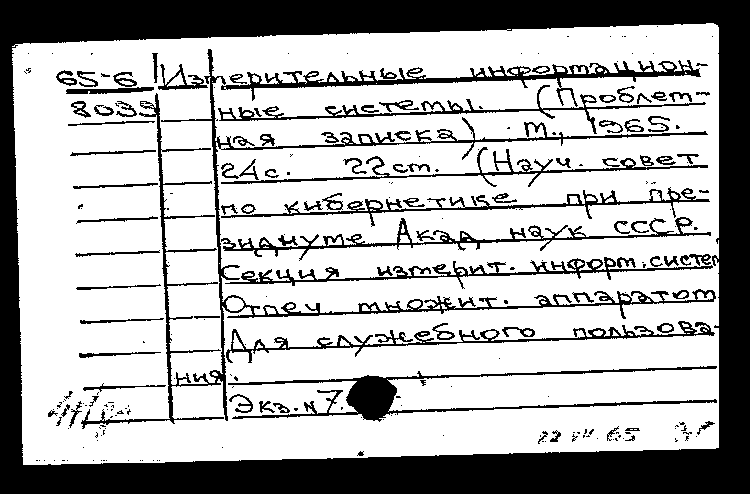 65-6 Измерительные информацион-
8039 ные системы. (Проблем-
ная записка). М., 1965.
24с. 22см. (Науч. совет
по кибернетике при пре-
зидиуме Акад. наук СССР.
Секция измерит. информ. систем
Отпеч. множит. аппаратом
Для служебного пользова-
ния.
Экз. № 7.
22 VII 65